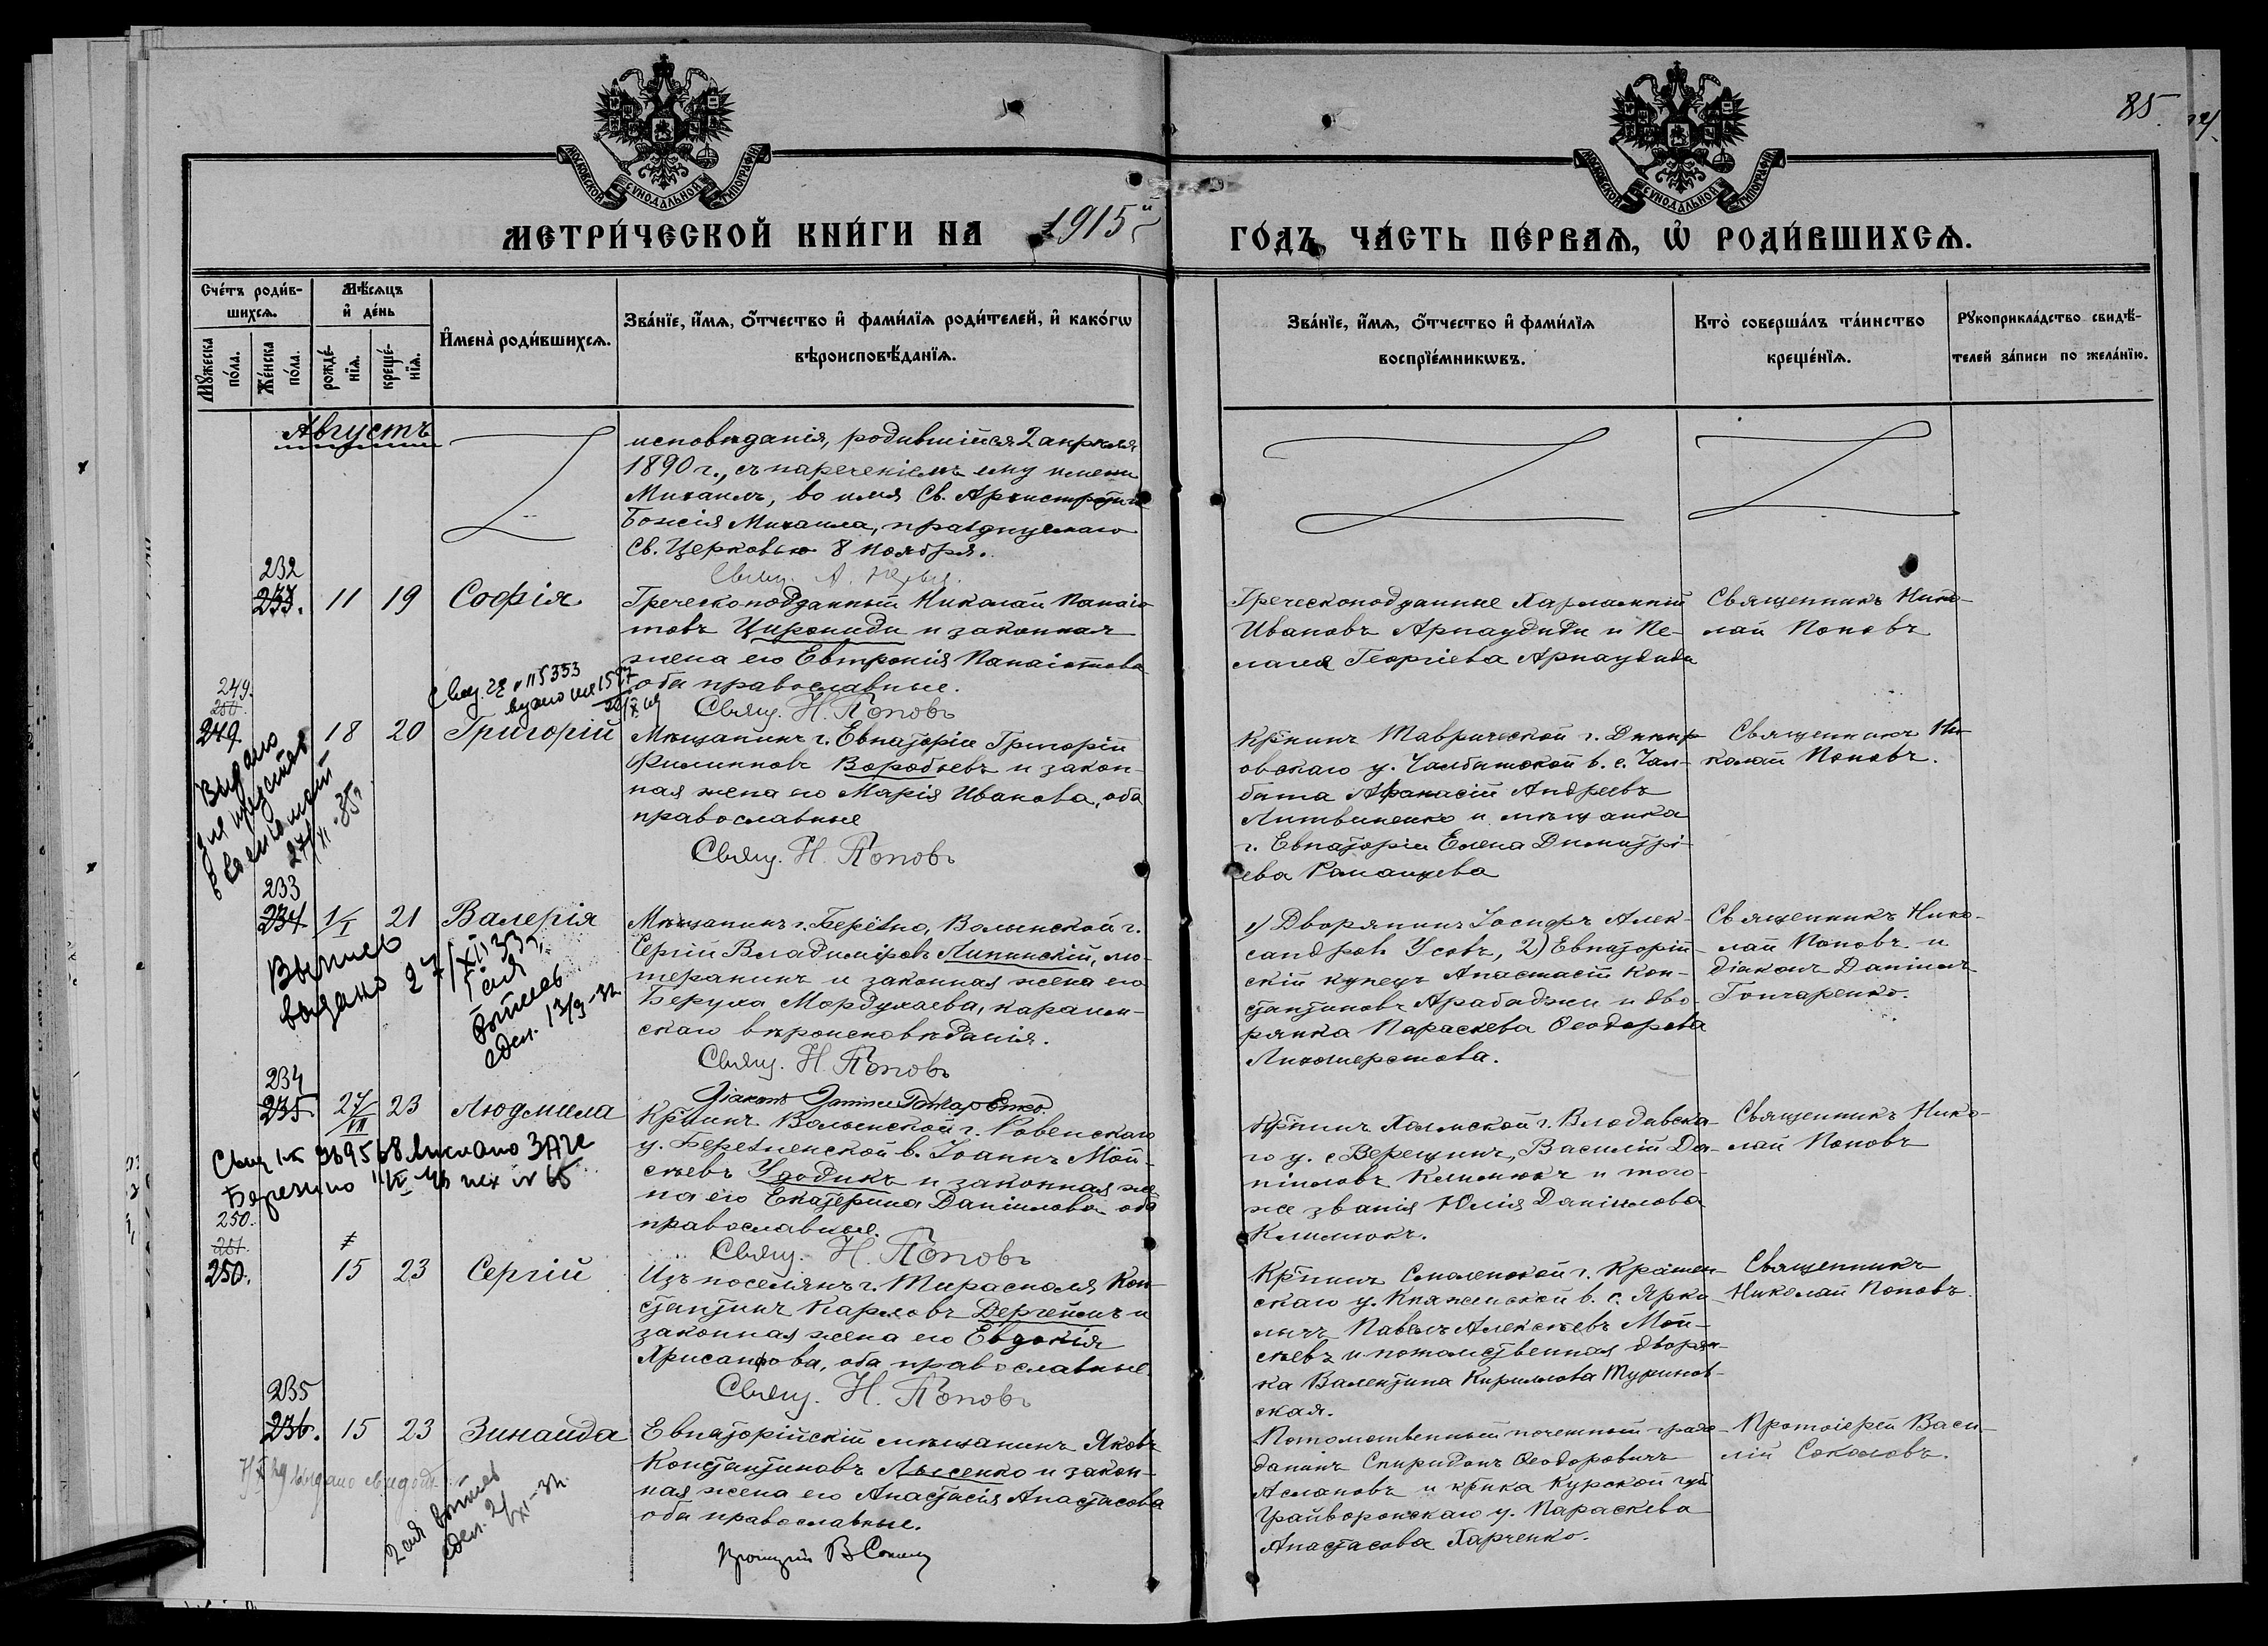 85
МОСКОВСКОЙ СУНОДАЛЬНОЙ ТИПОГРАФІИ
МОСКОВСКОЙ СУНОДАЛЬНОЙ ТИПОГРАФІИ
МЕТРИ́ЧЕСКОЙ КНИ́ГИ НА 1915й
ГО́ДЪ, ЧА́СТЬ ПЕ́РВАѦ, Ѡ҆ РОДИ́ВШИХСѦ.
Сче́тъ роди́в-
шихсѧ.
Мѣ́сѧцъ
и҆ де́нь
Мꙋ́жеска
по́ла.
Же́нска
по́ла.
рожде́-
нїѧ.
креще́-
нїѧ.
И҆мена̀ роди́вшихсѧ.
Зва́нїе, и҆́мѧ, ѻ҆́тчество и҆ фами́лїѧ роди́телей, и҆ како́гѡ
вѣроисповѣ́данїѧ.
Зва́нїе, и҆́мѧ, ѻ҆́тчество и҆ фами́лїѧ
воспрїе́мникѡвъ.
Кто̀ соверша́лъ та́инство
креще́нїѧ.
Рꙋкоприкла́дство свидѣ́-
телей за́писи по жела́нїю.
Августъ
исповѣданія, родившійся 2 апрѣля
1890 г., съ нареченіемъ ему имени
Михаилъ, во имя Св. Архистратига
Божія Михаила, празднуемаго
Св. Церковью 8 ноября.
Свящ. А.
232
233. 11 19 Софія
Греческоподданный Николай Панаіо
товъ Циропиди и законная
жена его Евтропія Панаіотова
оба православные.
Свящ. Н. Поповъ
Греческоподданные Харлампій
Ивановъ Арнаудиди и Пе-
лагея Георгіева Арнаудиди
Священникъ Нико-
лай Поповъ
249.
250.
249 18 20 Григорій
Выдано
27/XI-35г
Мѣщанинъ г. Евпаторіи Григорій
Филипповъ Воробьевъ и закон-
ная жена его Марія Иванова, оба
православные
Свящ. Н. Поповъ
Кр҃нинъ Таврической г. Днѣпр
овскаго у. Чалбатской в. с. Чал-
бата Афанасій Андреевъ
Литвиненко и мѣщанка
г. Евпаторіи Елена Димитрі-
ева Романцева
Священникъ Ни-
колай Поповъ.
233
234 1/I 21 Валерія
Выпись
выдано 27/XII 33г.
Мѣщанинъ г. Берёзно, Волынской г.
Сергій Владиміровъ Липинскій, лю-
теранинъ и законная жена его
Берула Мордухаева, караим-
скаго вѣроисповѣданія.
Свящ. Н. Поповъ
Діаконъ Даніилъ Гончаренко.
1) Дворянинъ Іосифъ Алек-
сандров. Усовъ, 2) Евпаторій-
скій купецъ Анастасій Кон-
стантиновъ Арабаджи и дво-
рянка Параскева Ѳеодорова
Лихошерстова.
Священникъ Нико-
лай Поповъ и
діаконъ Даніилъ
Гончаренко.
234
235 27/VII 23 Людмила
Кр҃нинъ Волынской г. Ровенскаго
у. Березненской в. Іоаннъ Мои-
сѣевъ Удодикъ и законная же
на его Екатерина Даніилова оба
православные.
Свящ. Н. Поповъ
Кр҃нинъ Холмской г. Влодавска-
го у. с. Верещинъ, Василій Да-
ніиловъ Климюкъ и того-
же званія Юлія Даніилова
Климюкъ.
Священникъ Нико-
лай Поповъ
250.
251.
250. 15 23 Сергій
Изъ поселянъ г. Тирасполя Кон-
стантинъ Карловъ Дергеймъ и
законная жена его Евдокія
Хрисанфова, оба православные.
Свящ. Н. Поповъ
Кр҃нинъ Смоленской г. Краснен-
скаго у. Княжинской в. с. Ярко-
Павелъ Алексѣевъ Мои-
сѣевъ и потомственная дворян-
ка Валентина Кириллова Туринов-
ская.
Священникъ
Николай Поповъ.
235
236. 15 23 Зинаида
Евпаторійскій мѣщанинъ Яковъ
Константиновъ Лысенко и закон-
ная жена его Анастасія Анастасова
оба православные.
Протоіерей В Соколовъ
Потомственный почетный граж-
данинъ Спиридонъ Ѳеодоровичъ
Аслановъ и кр҃нка Курской губ
Грайворонскаго у. Параскева
Анастасова Харченко.
Протоіерей Васи-
лій Соколовъ.